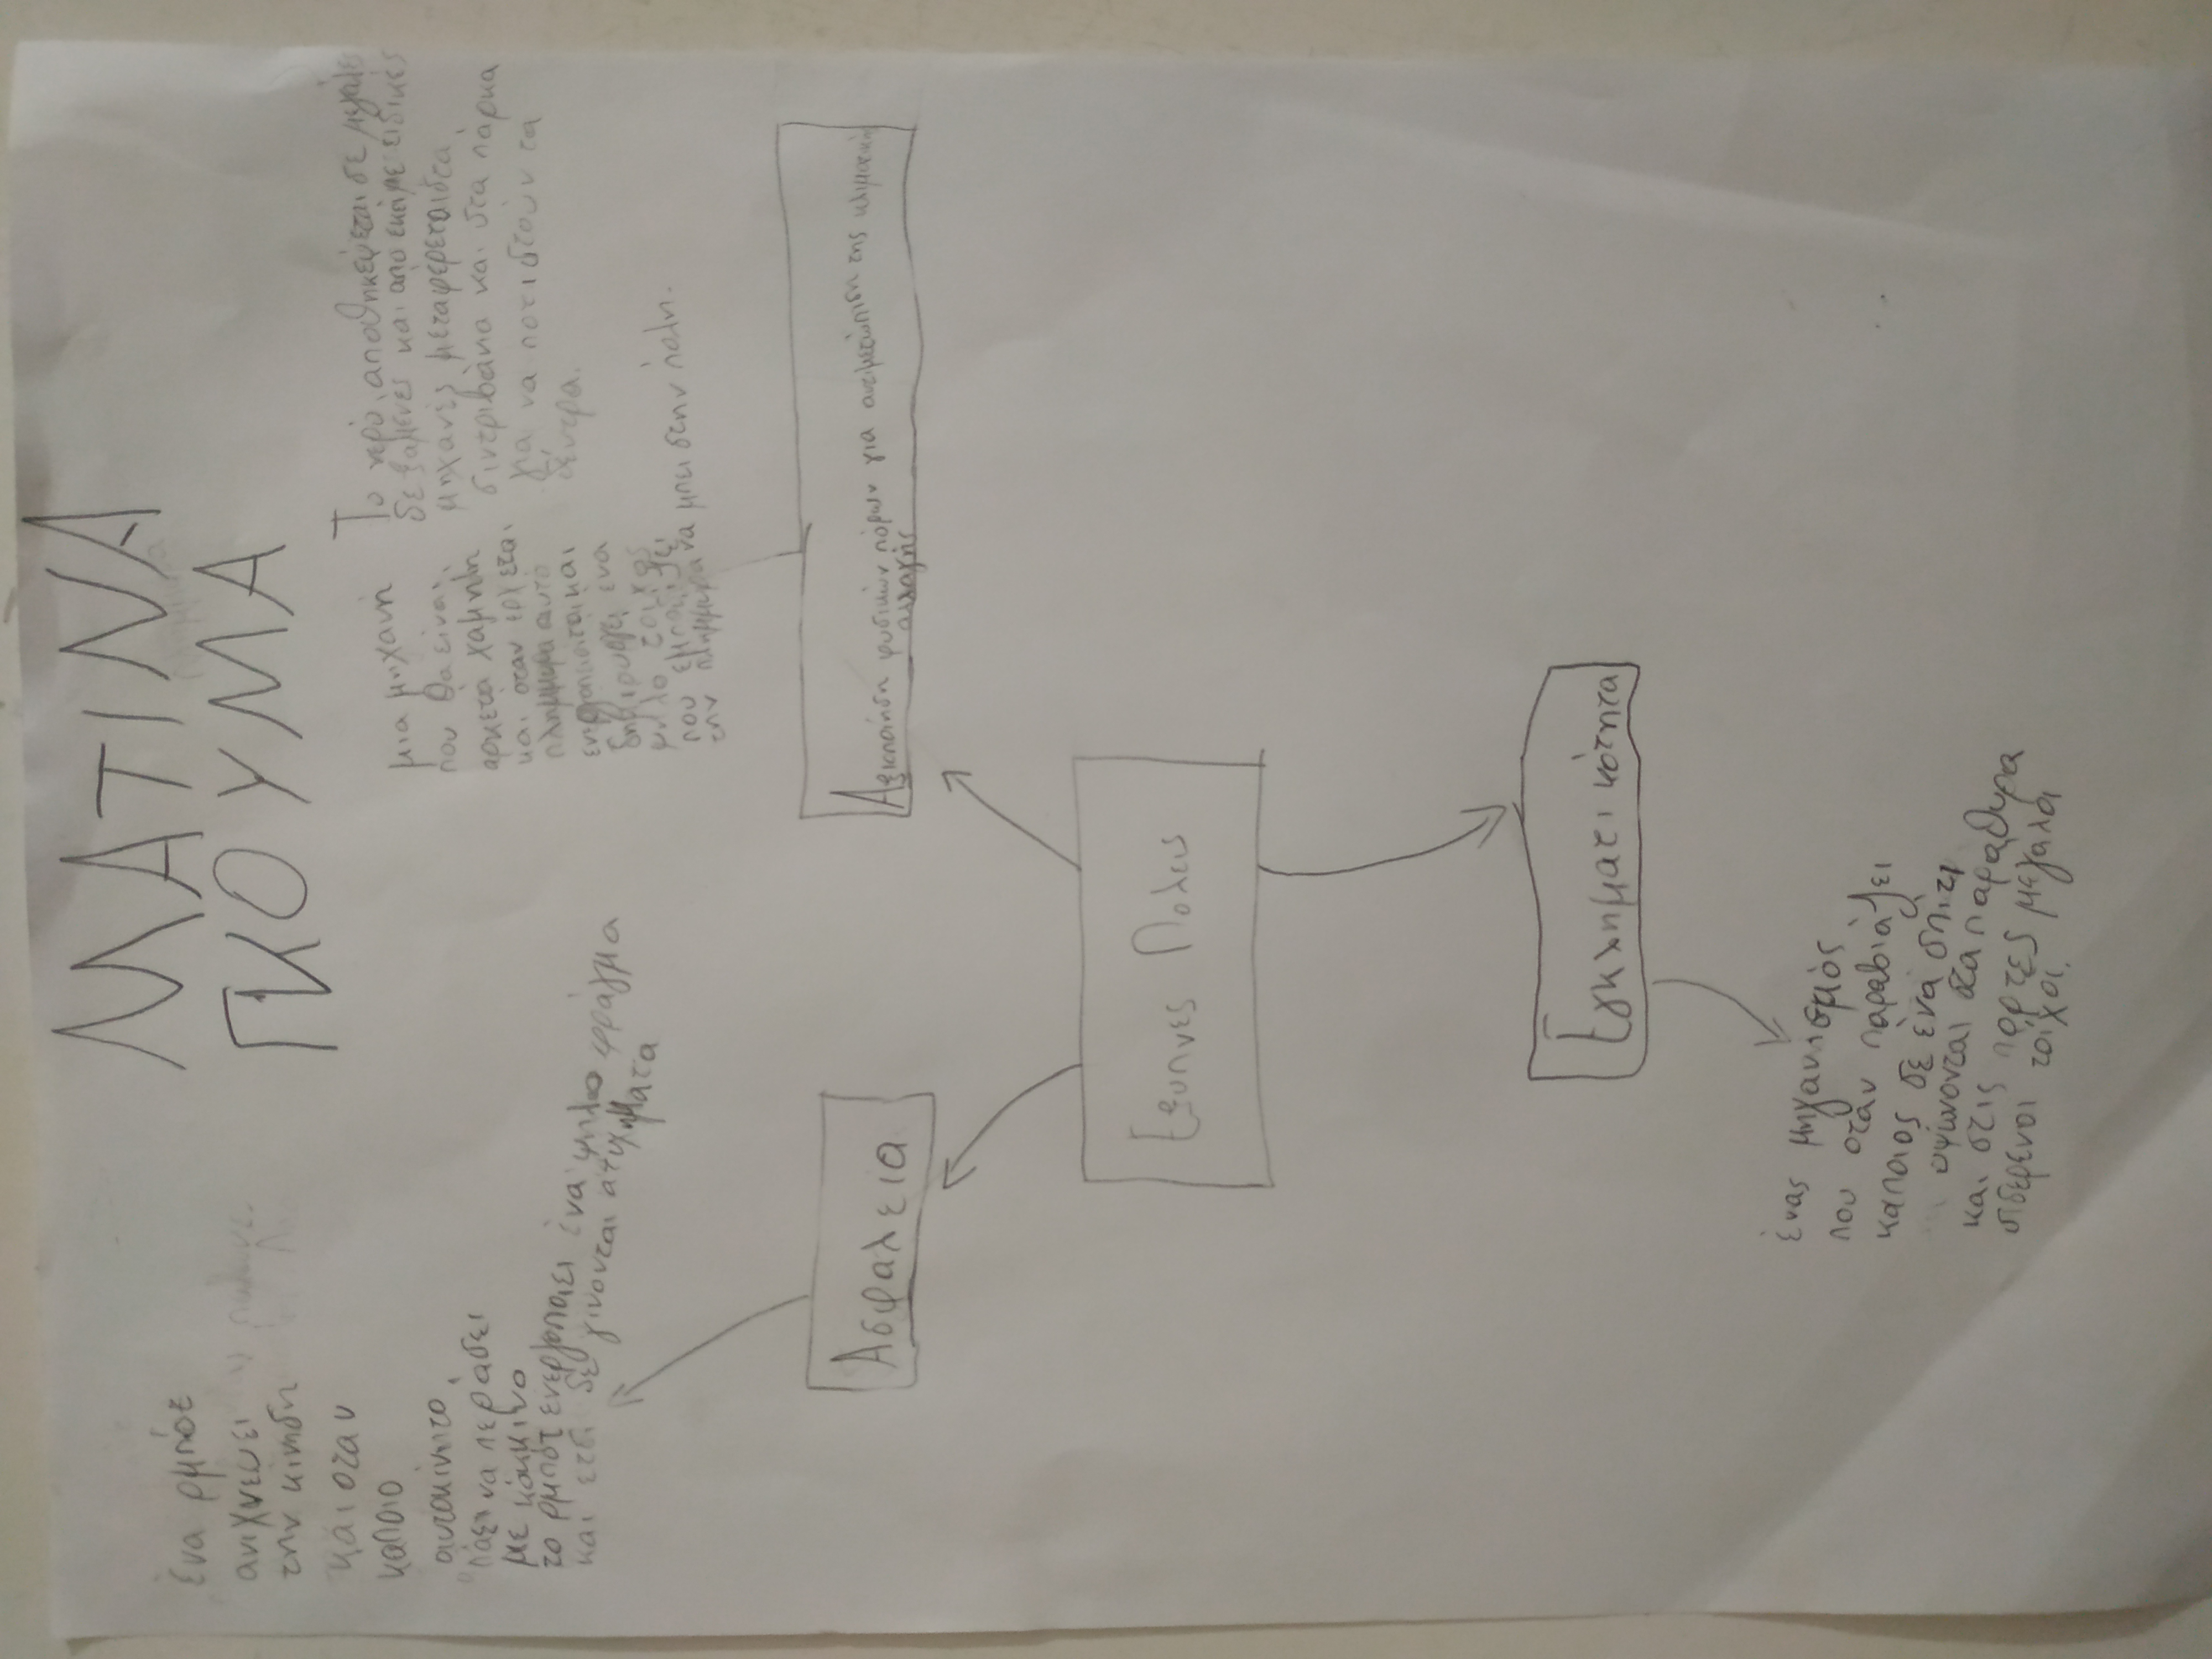 ΜΑΤΙΝΑ
ΓΚΟΥΜΑ
ένα ρμπότ
ανιχνεύει
την κίνηση
και οταν
καποιο
αυτοκίνητο
πάει να περάσει
με κόκκινο
το ρμπότ ενεργοποιεί ένα ψηλο φράγμα
και ετσι δε γινονται ατυχηματα
μια μηχανή
που θα είναι
αρκετά χαμηλή
και όταν ερχεται
πλημμυρα αυτό
ενεργοποιειται και
δημιουργεί ένα
ψηλο τοίχος
που εμποδίζει
την πλημμύρα να μπει στην πόλη.
Το νερό αποθηκεψεται σε μεγάλες
δεξαμενες και απο εκεί με ειδικές
μηχανές μεταφέρεται στα
σιντριβάνια και στα πάρκα
για να ποτιστούν τα
δέντρα.
Ασφαλεια
Αξιοποίηση φυσικών πόρων για αντιμετώπιση της κλιματική
αλλαγής
Εξυπνες Πολεις
Εγκληματικότητα
ένας μηχανισμός
που οταν παραβιάζει
καποιος σε ένα σπίτι
υψώνονται στα παραθυρα
και στις πόρτες μεγαλοι
σιδερενοι τοίχοι.